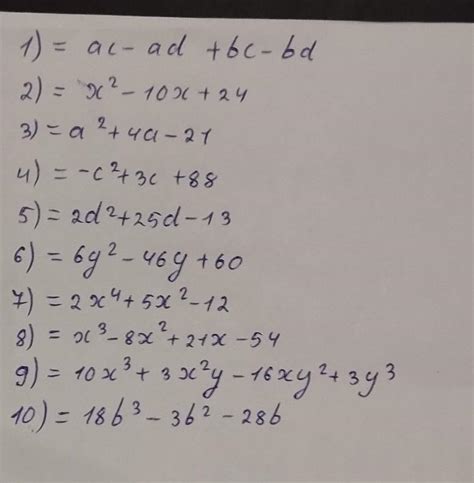 1) = ac - ad + bc - bd
2) = x² - 10x + 24
3) = a² + 4a - 21
4) = -c² + 3c + 88
5) = 2d² + 25d - 13
6) = 6y² - 46y + 60
7) = 2x⁴ + 5x² - 12
8) = x³ - 8x² + 21x - 54
9) = 10x³ + 3x²y - 16xy² + 3y³
10) = 18b³ - 3b² - 28b